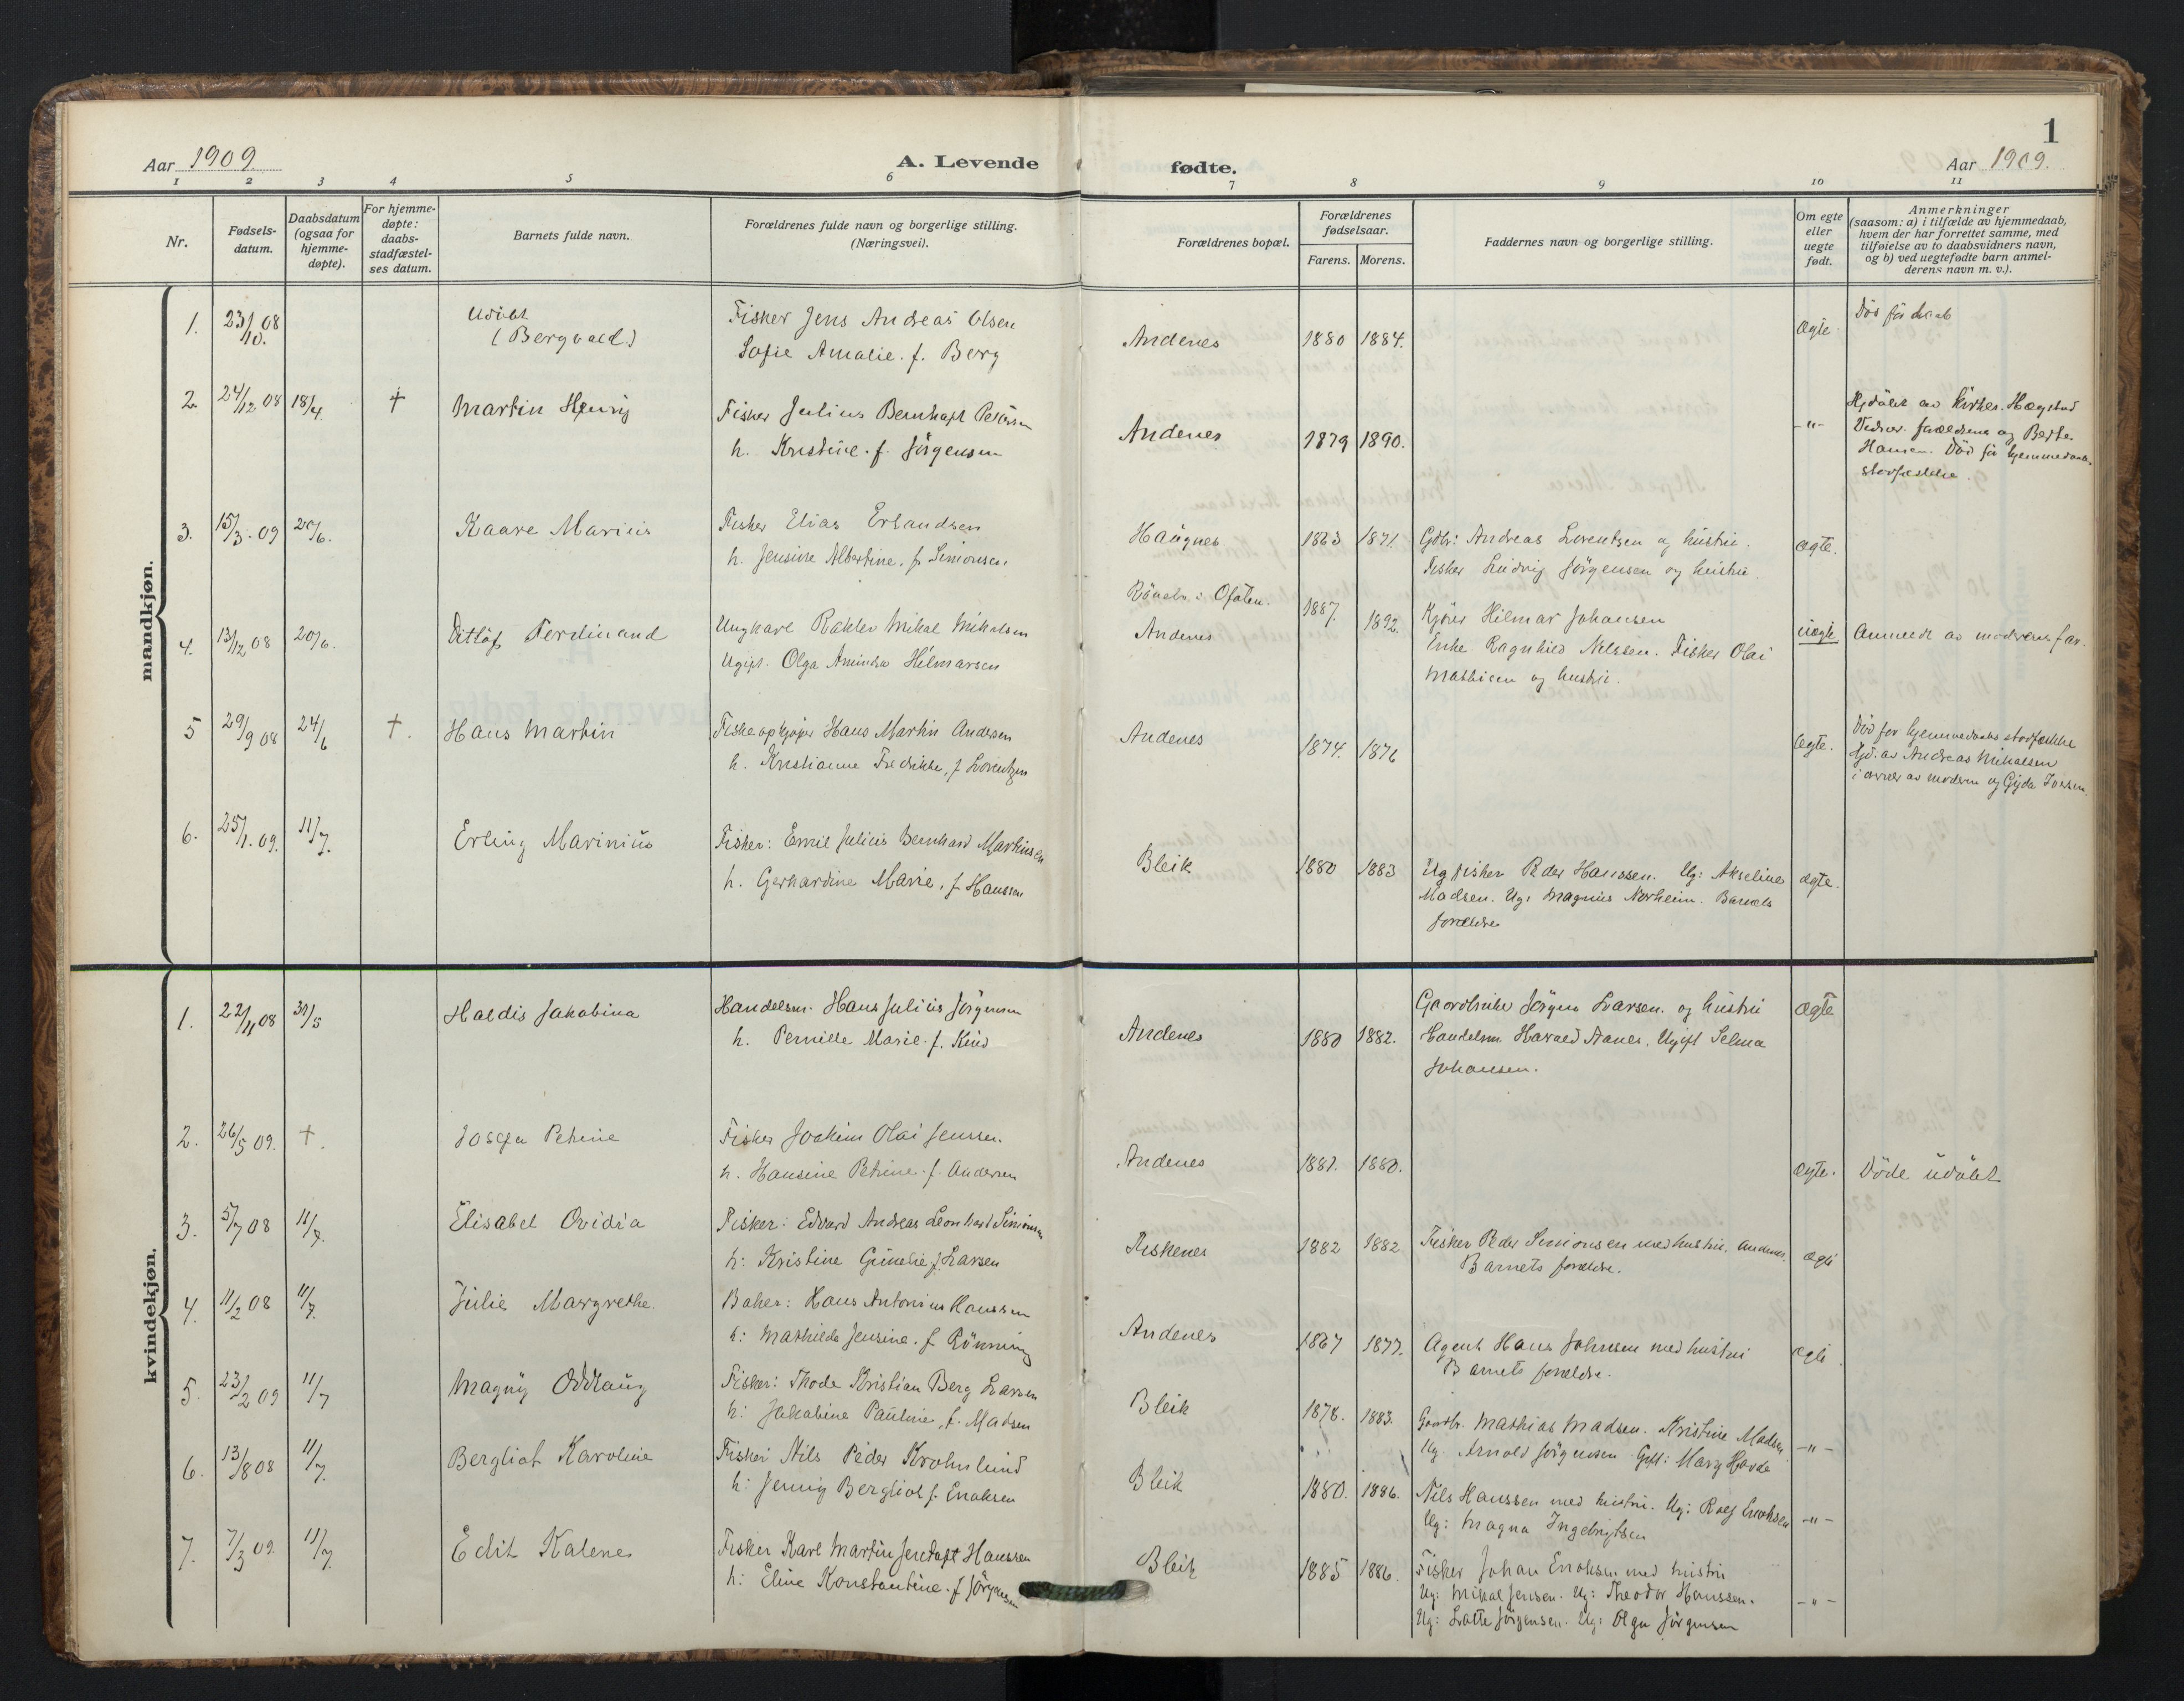 1
Aar 1909.
A. Levende fødte.
Aar 1909.
1 2 3 4 5 6 7 8 9 10 11
Nr.
Fødsels-
datum.
Daabsdatum
(ogsaa for
hjemme-
døpte).
For hjemme-
døpte:
daabs-
stadfæstel-
ses datum.
Barnets fulde navn.
Forældrenes fulde navn og borgerlige stilling.
(Næringsvei).
Forældrenes bopæl.
Forældrenes
fødselsaar.
Farens. Morens.
Faddernes navn og borgerlige stilling.
Om egte
eller
uegte
født.
Anmerkninger
(saasom: a) i tilfælde av hjemmedaab,
hvem der har forrettet samme, med
tilføielse av to daabsvidners navn,
og b) ved uegtefødte barn anmel-
derens navn m. v.).
mandkjøn.
1. 23/10. 08
Udöbt
(Bergvald)
Fisker Jens Andreas Olsen
Sofie Amalie. f. Berg
Andenes 1880 1884.
ægte.
Död før daab
2. 24/12 08 18/4. †
Martin Henry
Fisker Julius Bernhart Petersen
h. Kristine. f. Jörgensen
Andenes 1879 1890.
-"-
Hjdöbt av Kirkes. Hægstad
forældrene og Berte
Hansen. Död för hjemmedaabs-
stadfæstelse.
3. 15/3. 09 20/6.
Kaare Marius
Fisker Elias Erlandsen
h. Jensine Albertine. f. Simonsen
Haugnes 1863 1871.
Gdbr: Andreas Lorentsen og hustru.
Fisker Ludvig Jörgensen og hustru.
ægte.
4. 13/12 08 20/6.
Ditlöf Ferdinand
Ungkarl Mikal Mikalsen
Ugift. Olga Aminda Hilmarsen
i Ofoten.
Andenes
1887. 1892.
Hilmar Johansen
Enke Ragnhild Nilssen. Fisker Olai
Mathisen og hustru.
uægte
Anmeldt av moderens far.
5 29/9 08 24/6 †.
Hans Martin
Fiskeopkjøper Hans Martin Andersen
h. Kristianne Fredrikke, f. Lorentzen
Andenes 1874. 1876
ægte.
Död for hjemmedaabs stadfæstelse
Hjd. av Andreas Mikalsen
i nærvær av moderen og Gyda
6. 25/1. 09. 11/7.
Erling Marinius
Fisker: Emil Julius Bernhard Markussen
h. Gerhardine Marie, f. Hanssen
Bleik 1880 1883
Ug fisker Peder Hanssen. Ug: Akseline
Madsen. Ug: Magnus Norheim. Barnets
forældre
ægte.
kvindekjøn.
1. 22/11 08 31/5
Haldis Jakobina
Handelsm. Hans Julius Jörgensen
h. Pernille Marie. f. Kiid
Andenes 1880 1882.
Gaardbruker Jörgen Larsen. og hustru
Handelsm. Harald Aanes. Ugift Selma
Johansen.
ægte
2. 26/5 09. †.
Petrine
Fisker Joakim Olai Jenssen.
h. Hansine Petrine. f. Andersen
Andenes 1881. 1880.
ægte.
Döde udöbt
3. 5/7 08 11/7.
Elisabet Ovidia
Fisker: Edvard Andreas Leonhard Simonsen
h: Kristine Gunelie f. Larsen
Fiskenes 1882 1882
Fisker Peder Simonsen med hustru, Andenes.
Barnets forældre.
ægte
4. 11/2 08 11/7.
Julie Margrethe.
Baker: Hans Antonius Hanssen
h: Mathilde Jensine. f. Rönning
Andenes 1867 1877.
Agent Hans Johnsen med hustru
Barnets forældre.
ægte
5. 23/2 09 11/7
Magny Oddlaug
Fisker: Thode Kristian Berg Larsen
h: Jakobine Pauline, f. Madsen
Bleik 1878. 1883.
Gaardbr. Mathias Madsen. Kristine Madsen
Ug. Arnold Jörgensen Gift: Mary Havde
-"-
6. 13/8 08 11/7.
Bergliot Karoline
Fisker Nils Peder Krohnlund
h: Jenny Bergliot f. Enoksen
Bleik 1880. 1886.
Nils Hanssen med hustru. Ug: Rolf Enoksen
Ug: Magna Ingebrigtsen
-"-
7. 7/3 09. 11/7.
Edit Kalenes
Fisker Karl Martin Jentoft Hanssen
h: Eline Konstantine. f Jörgensen
Bleik 1885 1886.
Fisker Johan Enoksen med hustru
Ug: Mikal Jensen. Ug: Theodor Hanssen.
Ug: Lotte Jörgensen. Ug: Olga Jörgensen
-"-